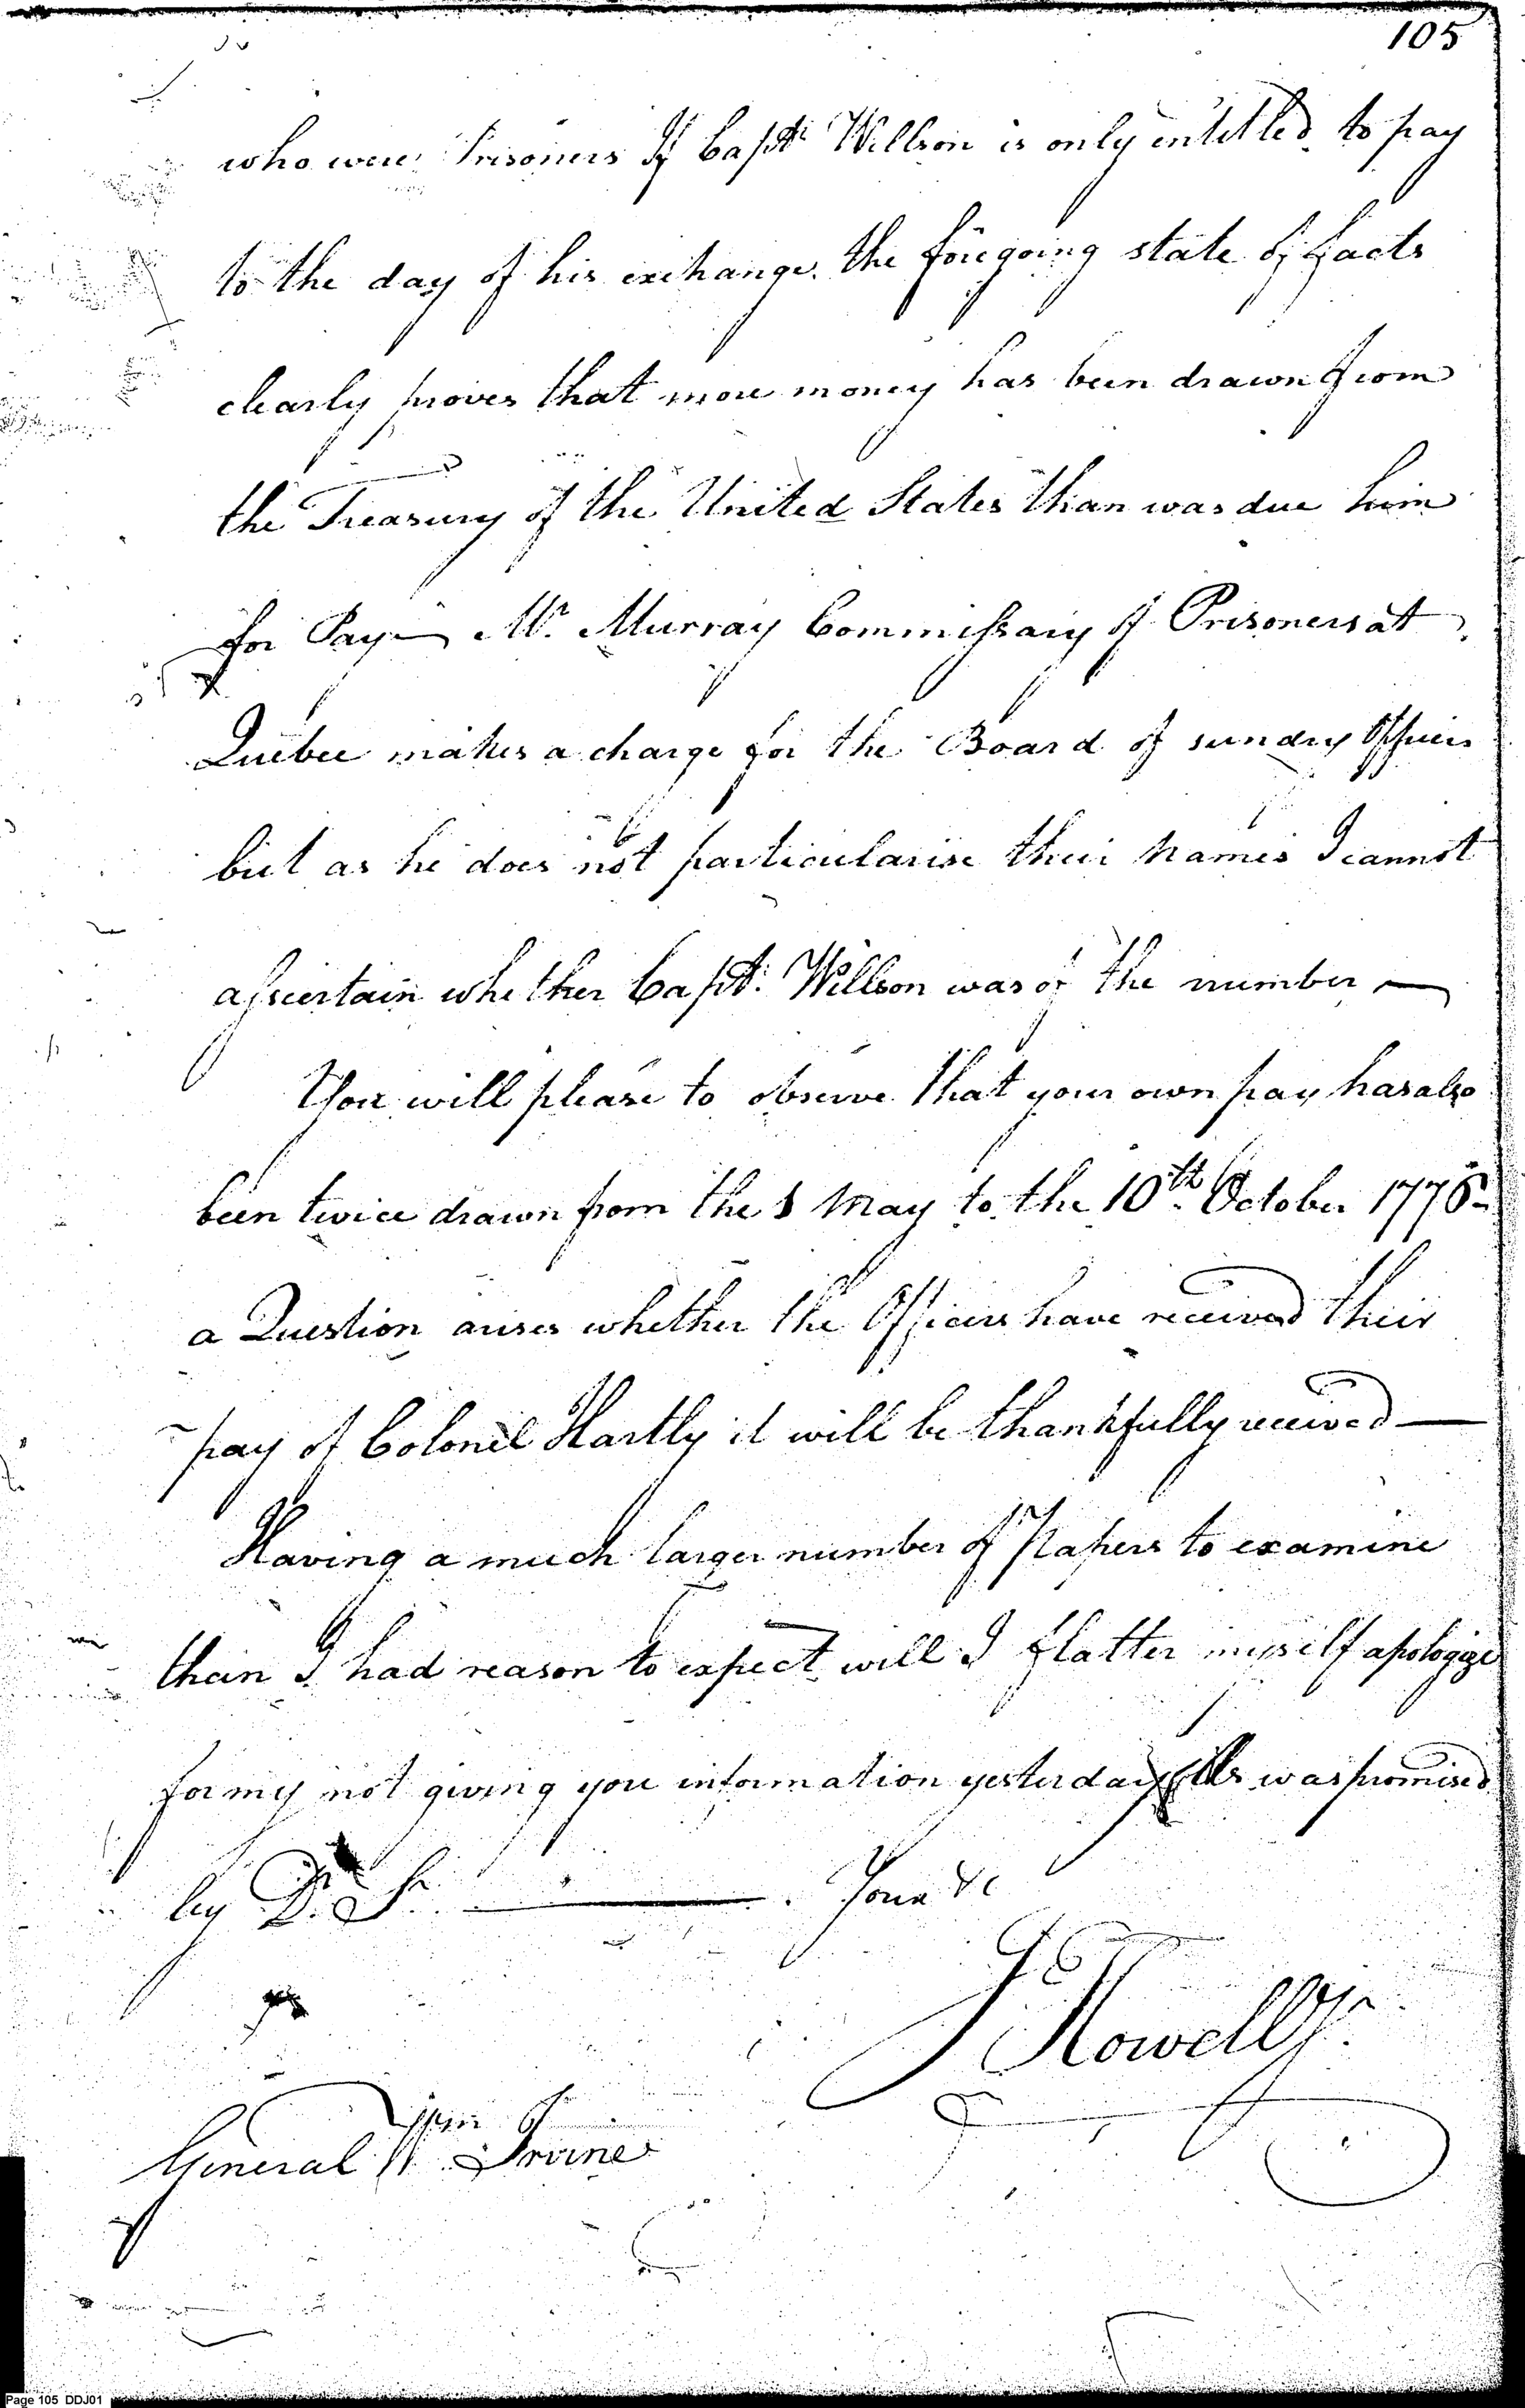 105
who were Prisoners If Capt: Willson is only intitled to pay
to the day of his exchange. the foregoing state of facts
clearly proves that more money has been drawn from
the Treasury of the United States than was due him
for Pay— Mr. Murray Commissary of Prisoners at
Quebec makes a charge for the Board of sundry Officers
but as he does not particularise their names I cannot
assertain whether Capt: Willson was of the number —
You will please to observe that your own pay has also
been twice drawn from the 1 May to the 10th. October 1776—
a Question arises whether the Officers have received their
pay of Colonel Hartly it will be thankfully received —
Having a much larger number of Papers to examine
than I had reason to expect will I flatter myself apologize
for my not giving you information yesterday As was promised
by Dr. Sr. ——— . Your &c
J Howell Jr.
General W Irvine
Page 105 DDJ01